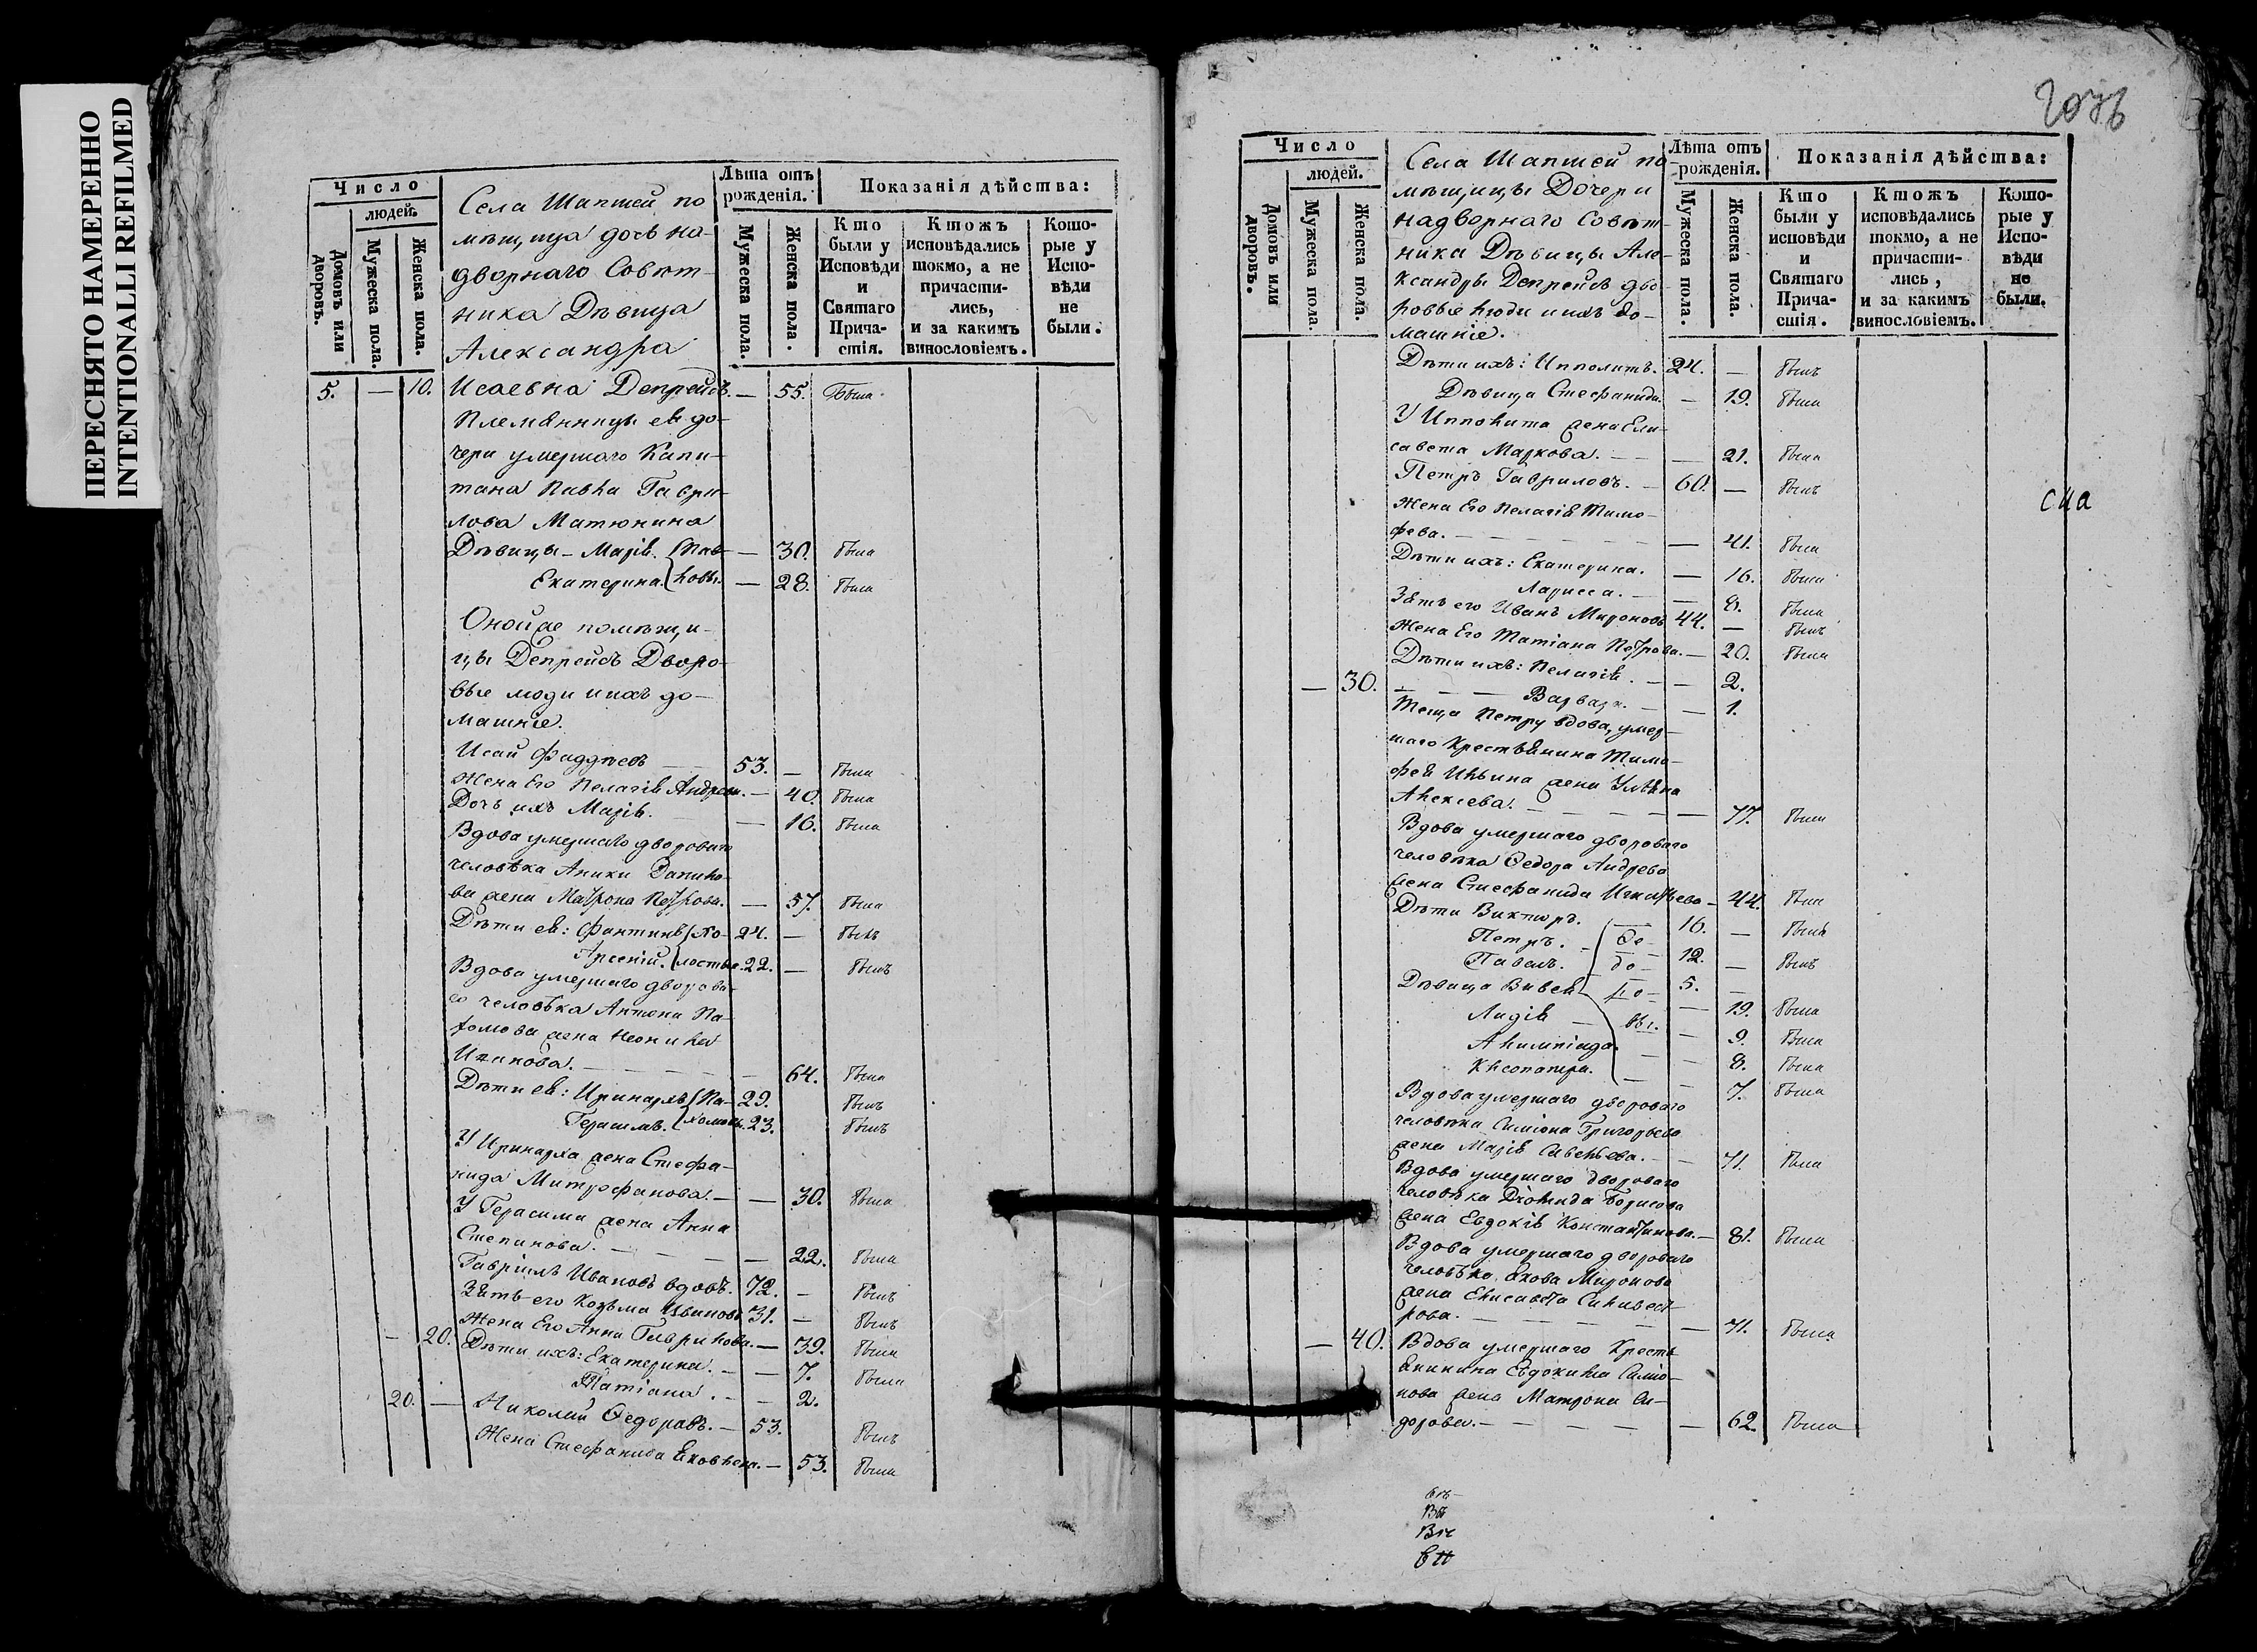 ПЕРЕСНЯТО НАМЕРЕННО
INTENTIONALLI REFILMED
Число
людей.
Домовъ или дворовъ.
Мужеска пола.
Женска пола.
Села Шапшей по-
мѣщица дочь на-
дворнаго Совѣт-
ника Дѣвица
Александра
Лѣта отъ рожденія.
Мужеска пола.
Женска пола.
Показанія дѣйства:
Кто были у Исповѣди и Святаго Прича-стія.
Ктожъ исповѣдались токмо, а не причасти-лись, и за какимъ винословіемъ.
Кото-рые у Испо-вѣди не были.
5. — 10. Исаевна Депрейсъ. — 55. Была
Племянницы ея до-
чери умершаго Капи-
тана Павла Гаври-
лова Матюнина
Дѣвицы - Марія. Пав- — 30. была
Екатерина. ловы. — 28. была
Оной же помѣщи-
цы Депрейсъ Дворо-
вые люди и ихъ до-
машніе.
Исай Фаддѣевъ 53. — былъ
Жена Его Пелагія Андреева. — 40. была
Дочь ихъ Марія. — 16. была
Вдова умершаго двороваго
человѣка Аники Данило-
ва жена Матрона Петрова. — 57. была
Дѣти ея: Фантинъ 24. — былъ
Арсеній. 22. — былъ
Вдова умершаго дворова-
го человѣка Антона Па-
хомова жена Неонила
64. была
Дѣти ея: Иринархъ Па- 29. былъ
Герасимъ. хомовы. 23. былъ
У Иринарха жена Стефа-
нида Митрофанова. — — 30. была
У Герасима жена Анна
Степанова. — 22. была
Гавріилъ Ивановъ вдовъ. 72. — былъ
Зять его Козьма Ивановъ 31. — былъ
Жена Его Анна Гаврилова. — 39. была
— 20. Дѣти ихъ: Екатерина. — — 7. была
Татіана. — — 2.
20. — Николай Ѳедоровъ. — 53. былъ
Жена Стефанида Яковлева. — 53. была
Число
людей.
Домовъ или дворовъ.
Мужеска пола.
Женска пола.
Села Шапшей по-
мѣщицы Дочери
надворнаго Совѣт-
ника Дѣвицы Але-
ксандры Депрейсъ дво-
ровые люди и ихъ до-
машніе.
Лѣта отъ рожденія.
Мужеска пола.
Женска пола.
Показанія дѣйства:
Кто были у исповѣди и Святаго Прича-стія.
Ктожъ исповѣдались токмо, а не причасти-лись, и за какимъ винословіемъ.
Кото-рые у Испо-вѣди не были.
Дѣти ихъ: Ипполитъ. 24. — былъ
Дѣвица Стефанида. — 19. была
У Ипполита жена Ели-
савета Маркова. — — 21. была
Петръ Гавриловъ. — 60. — былъ
сца
Жена Его Пелагія Тимо-
фева. — — 41. была
Дѣти ихъ: Екатерина. — 16. была
Ларисса. — — 8. была
Зять его Иванъ Мироновъ 44. — былъ
Жена Его Татіана Петрова. — 20. была
Дѣти ихъ: Пелагія. — — 2.
— 30. Варвара. — — 1.
Теща Петру вдова, умер-
шаго Крестьянина Тимо-
фея Ильина жена Уліяна
Алексева. — 77. была
Вдова умершаго двороваго
человѣка Ѳедора Андреева
жена Стефанида Игнатьева — 44. была
Дѣти Викторъ. — 16. — былъ
Петръ. Ѳе- 12. — былъ
Павелъ. до- 5. —
Дѣвица Вивея ро- — 19. была
Лидія — вы. — 9. Была
Алимпіада. — — 8. была
Клеопатра. — — 7. была
Вдова умершаго двороваго
человѣка Симіона Григорьева
жена Марія Савельева. — 71. была
Вдова умершаго двороваго
человѣка Борисова
жена Евдокія Константинова. — 81. была
Вдова умершаго двороваго
человѣка Якова Миронова
жена Елисавета Сильвест-
рова. — — 71. была
— 40. Вдова умершаго Кресть-
янина Евдокима Симіо-
нова жена Матрона Си-
дорова. — — 62. была